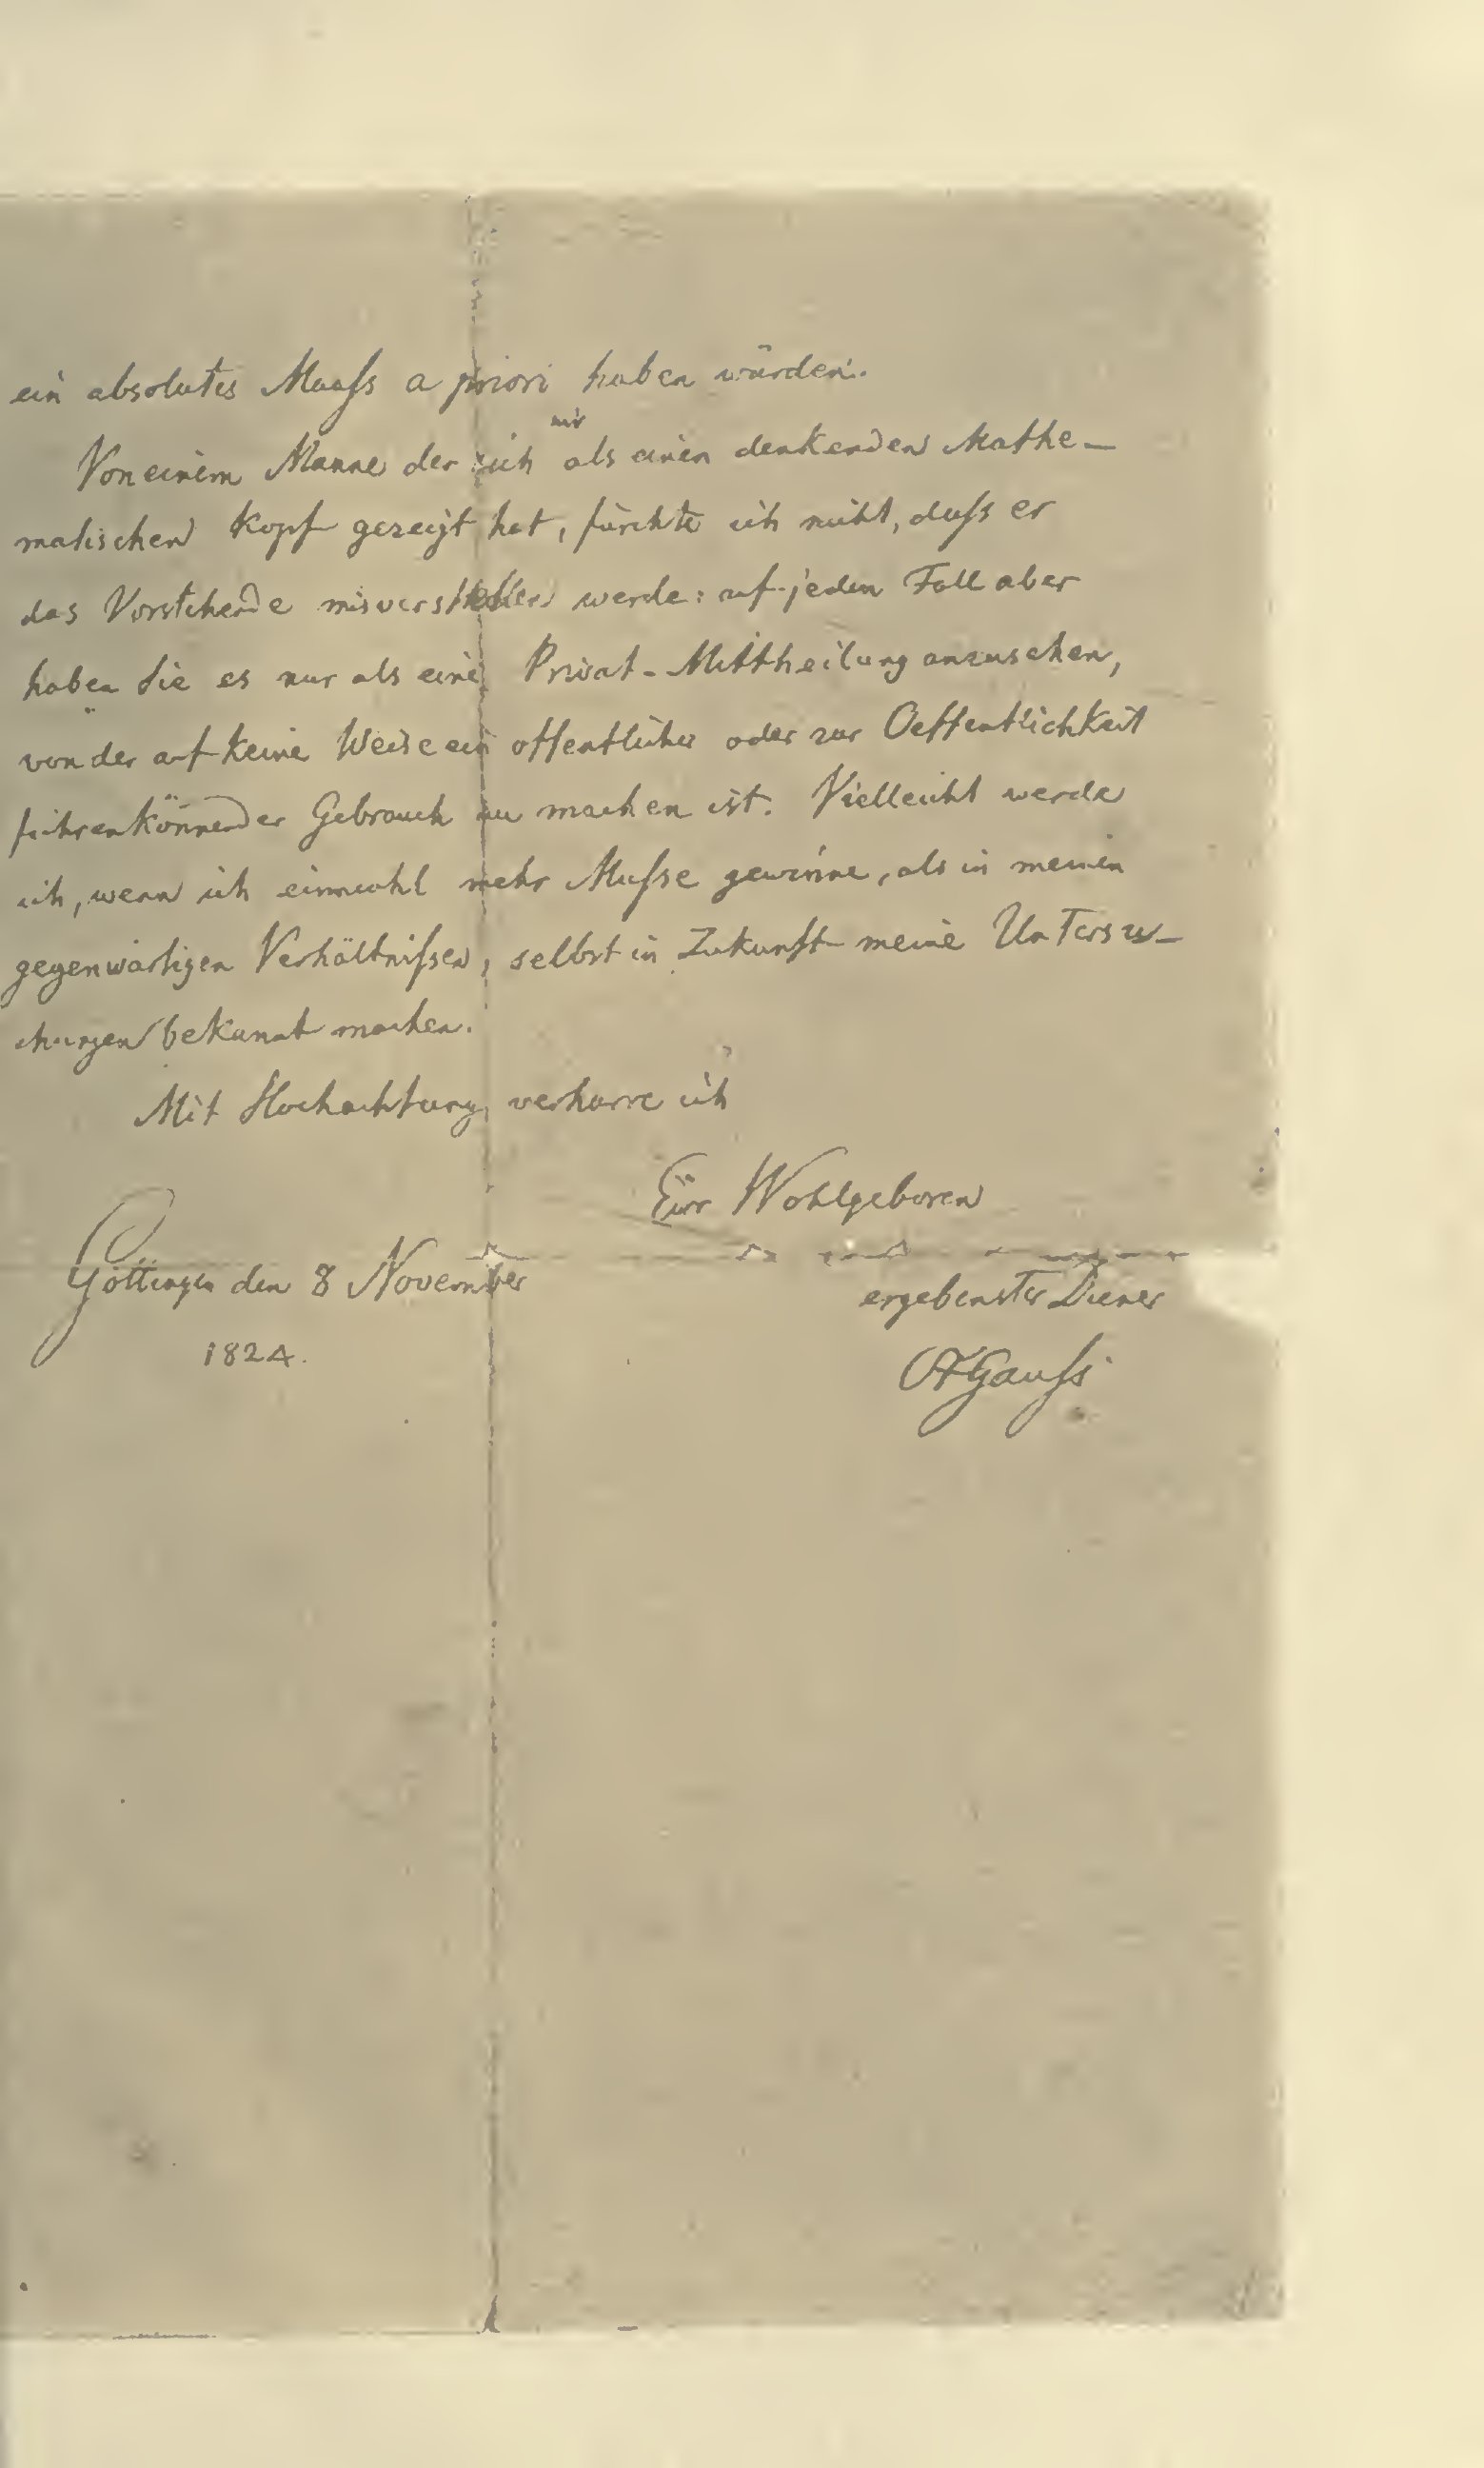 ein absolutes Maaſs a priori haben würden.
mir
Von einem Manne der sich als einen denkenden Mathe-
matischen Kopf gezeigt hat, fürchte ich nicht, daſs er
das Vorstehende misverstehen werde: auf jeden Fall aber
haben Sie es nur als eine Privat-Mittheilung anzusehen,
von der auf keine Weise ein öffentlicher oder zur Oeffentlichkeit
führen könnender Gebrauch zu machen ist. Vielleicht werde
ich, wenn ich einmahl mehr Muſse gewinne, als in meinen
gegenwärtigen Verhältniſsen, selbst in Zukunft meine Untersu-
chungen bekannt machen.
Mit Hochachtung verharre ich
Eur Wohlgeboren
Göttingen den 8 November
ergebenster Diener
1824.
CFGauſs